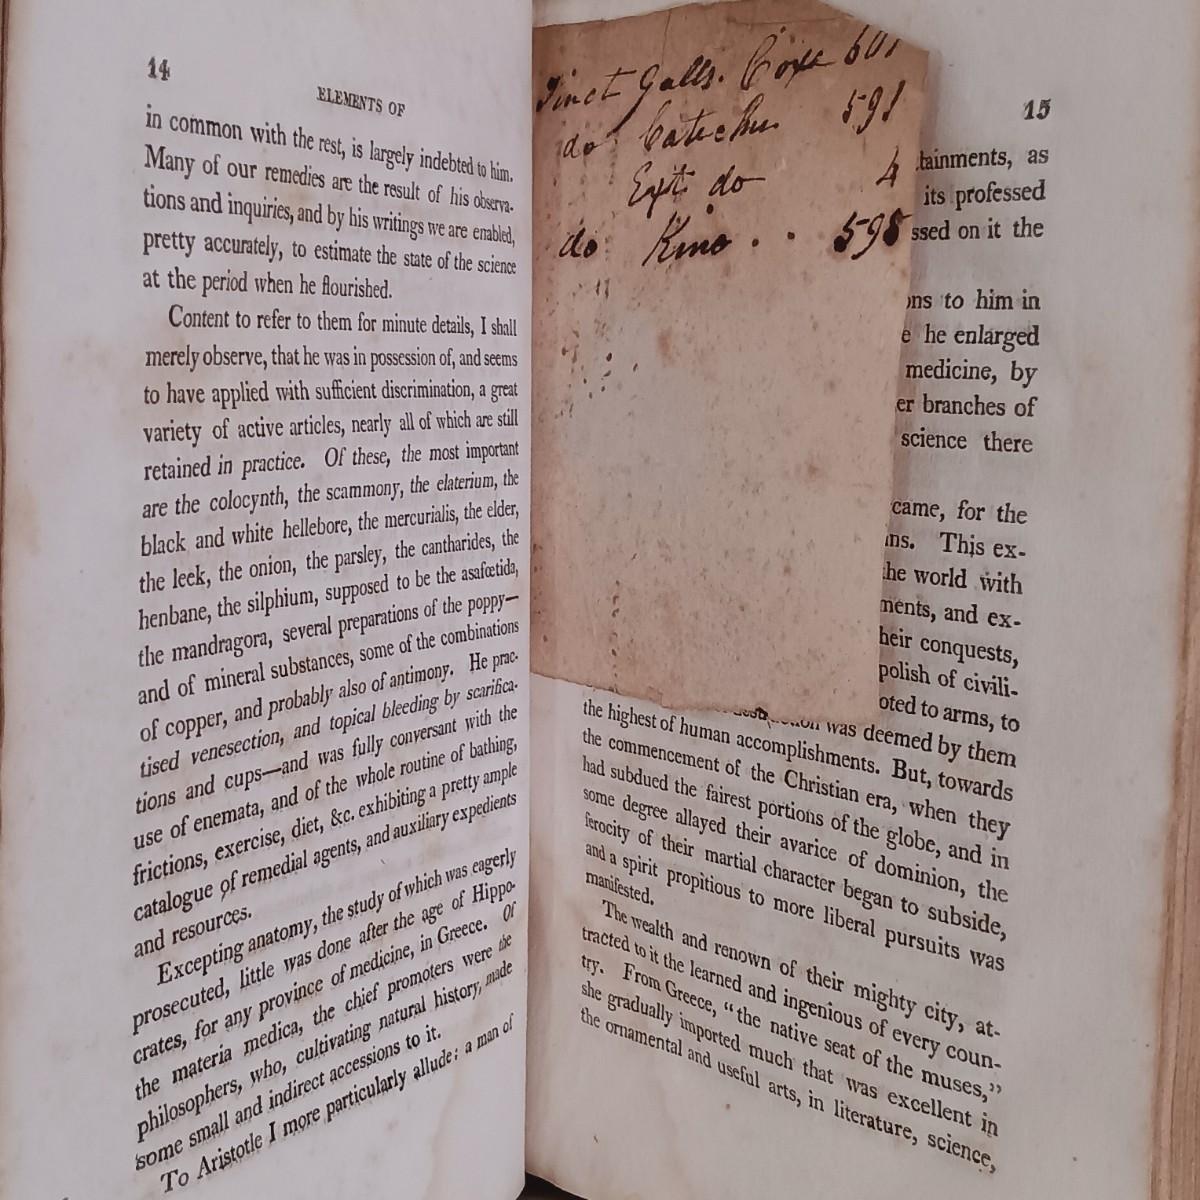 14
ELEMENTS OF
in common with the rest, is largely indebted to him.
Many of our remedies are the result of his observa-
tions and inquiries, and by his writings we are enabled,
pretty accurately, to estimate the state of the science
at the period when he flourished.
Content to refer to them for minute details, I shall
merely observe, that he was in possession of, and seems
to have applied with sufficient discrimination, a great
variety of active articles, nearly all of which are still
retained in practice. Of these, the most important
are the colocynth, the scammony, the elaterium, the
black and white hellebore, the mercurialis, the elder,
the leek, the onion, the parsley, the cantharides, the
henbane, the silphium, supposed to be the asafœtida,
the mandragora, several preparations of the poppy—
and of mineral substances, some of the combinations
of copper, and probably also of antimony. He prac-
tised venesection, and topical bleeding by scarifica-
tions and cups—and was fully conversant with the
use of enemata, and of the whole routine of bathing,
frictions, exercise, diet, &c. exhibiting a pretty ample
catalogue of remedial agents, and auxiliary expedients
and resources.
Excepting anatomy, the study of which was eagerly
prosecuted, little was done after the age of Hippo-
crates, for any province of medicine, in Greece. Of
the materia medica, the chief promoters were the
philosophers, who, cultivating natural history, made
some small and indirect accessions to it.
To Aristotle I more particularly allude: a man of
Tinct Galls. Coxe 601
do Catechu 591
Ext do 4
do Kino . . 595
15
tainments, as
its professed
ssed on it the
ons to him in
e he enlarged
medicine, by
er branches of
science there
came, for the
ns. This ex-
he world with
ments, and ex-
heir conquests,
polish of civili-
oted to arms, to
was deemed by them
the highest of human accomplishments. But, towards
the commencement of the Christian era, when they
had subdued the fairest portions of the globe, and in
some degree allayed their avarice of dominion, the
ferocity of their martial character began to subside,
and a spirit propitious to more liberal pursuits was
manifested.
The wealth and renown of their mighty city, at-
tracted to it the learned and ingenious of every coun-
try. From Greece, "the native seat of the muses,"
she gradually imported much that was excellent in
the ornamental and useful arts, in literature, science,